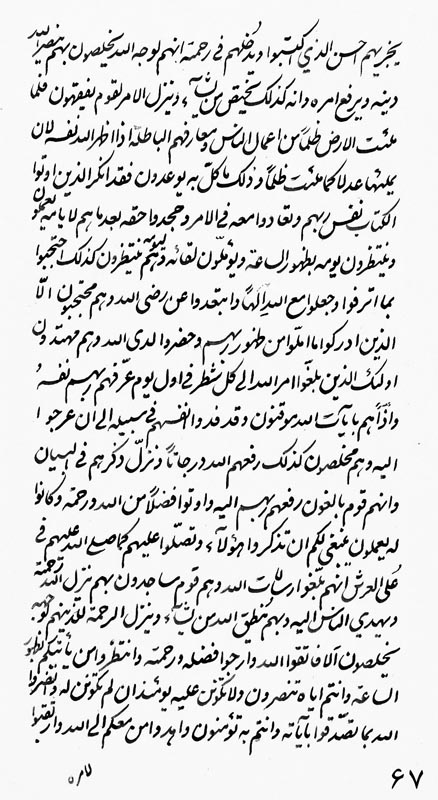 یجزیهم احسن الذی اکتسبوا ویدخلهم فی رحمته انهم لوجه الله یخلصون بهم ینصر الله
دینه ویرفع امره وانه کذلک یختص من یشآء وینزل الامر لقوم یفقهون فلما
ملئت الارض ظلماً من اعمال الناس ومعارفهم الباطلة اذا اظهر الله نفسه لان
یملئها عدلا کما ملئت ظلماً و ذلک ما کل به یوعدون فقد انکر الذین اوتوا
الکتاب نفس ربهم وتعادوا معه فی الامر وجحدوا حقه بعد ما هم لایامه یعملون
وینتظرون یومه بظهور الساعة ویؤملون لقائه وهم منتظرون کذلک احتجبوا
بما اترفوا وجعلوا مع الله الهاً وابتعدوا عن رضی الله وهم محتجبون الا
الذین ادرکوا ما املوا من ظهور ربهم وحضروا لدی الله وهم مهتدون
اولئک الذین بلغوا امر الله الی کل شطر فی اول یوم عرفهم ربهم نفسه
واذاً هم بایات الله موقنون وقد فدوا انفسهم فی سبیله الی ان عرجوا
الیه وهم مخلصون کذلک رفعهم الله درجاتاً ونزل ذکرهم فی البیان
وانهم قوم بالغون رفعهم ربهم الیه واوتوا فضلاً من الله ورحمة وکانوا
له یعملون ینبغی لکم ان تذکروا هؤلآء وتصلوا علیهم کما صلی الله علیهم فی
علی العرش انهم بلغوا رسالات الله وهم قوم ساجدون بهم نزل الله رحمة
ویهدی الناس الیه وبهم ینطق الله من یشآء وینزل الرحمة للذینهم لوجهه
یخلصون الا فاتقوا الله وارجوا فضله ورحمته وانتظروا من یأتیکم بظهور
الساعة وانتم ایاه تنصرون ولا تکونن علیه یومئذ ان لم تکونن له وانصروا
الله بما تصدقوا بآیاته وانتم به تؤمنون واهدوا من معکم الی الله وارتقبوا
۶۷